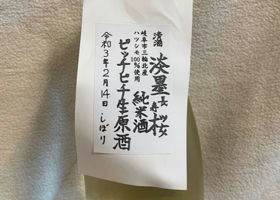 清酒
淡墨桜
長寿
岐阜市三輪北産
ハツシモ100%使用
純米酒
ピッチピチ生原酒
令和3年2月14日 しぼり